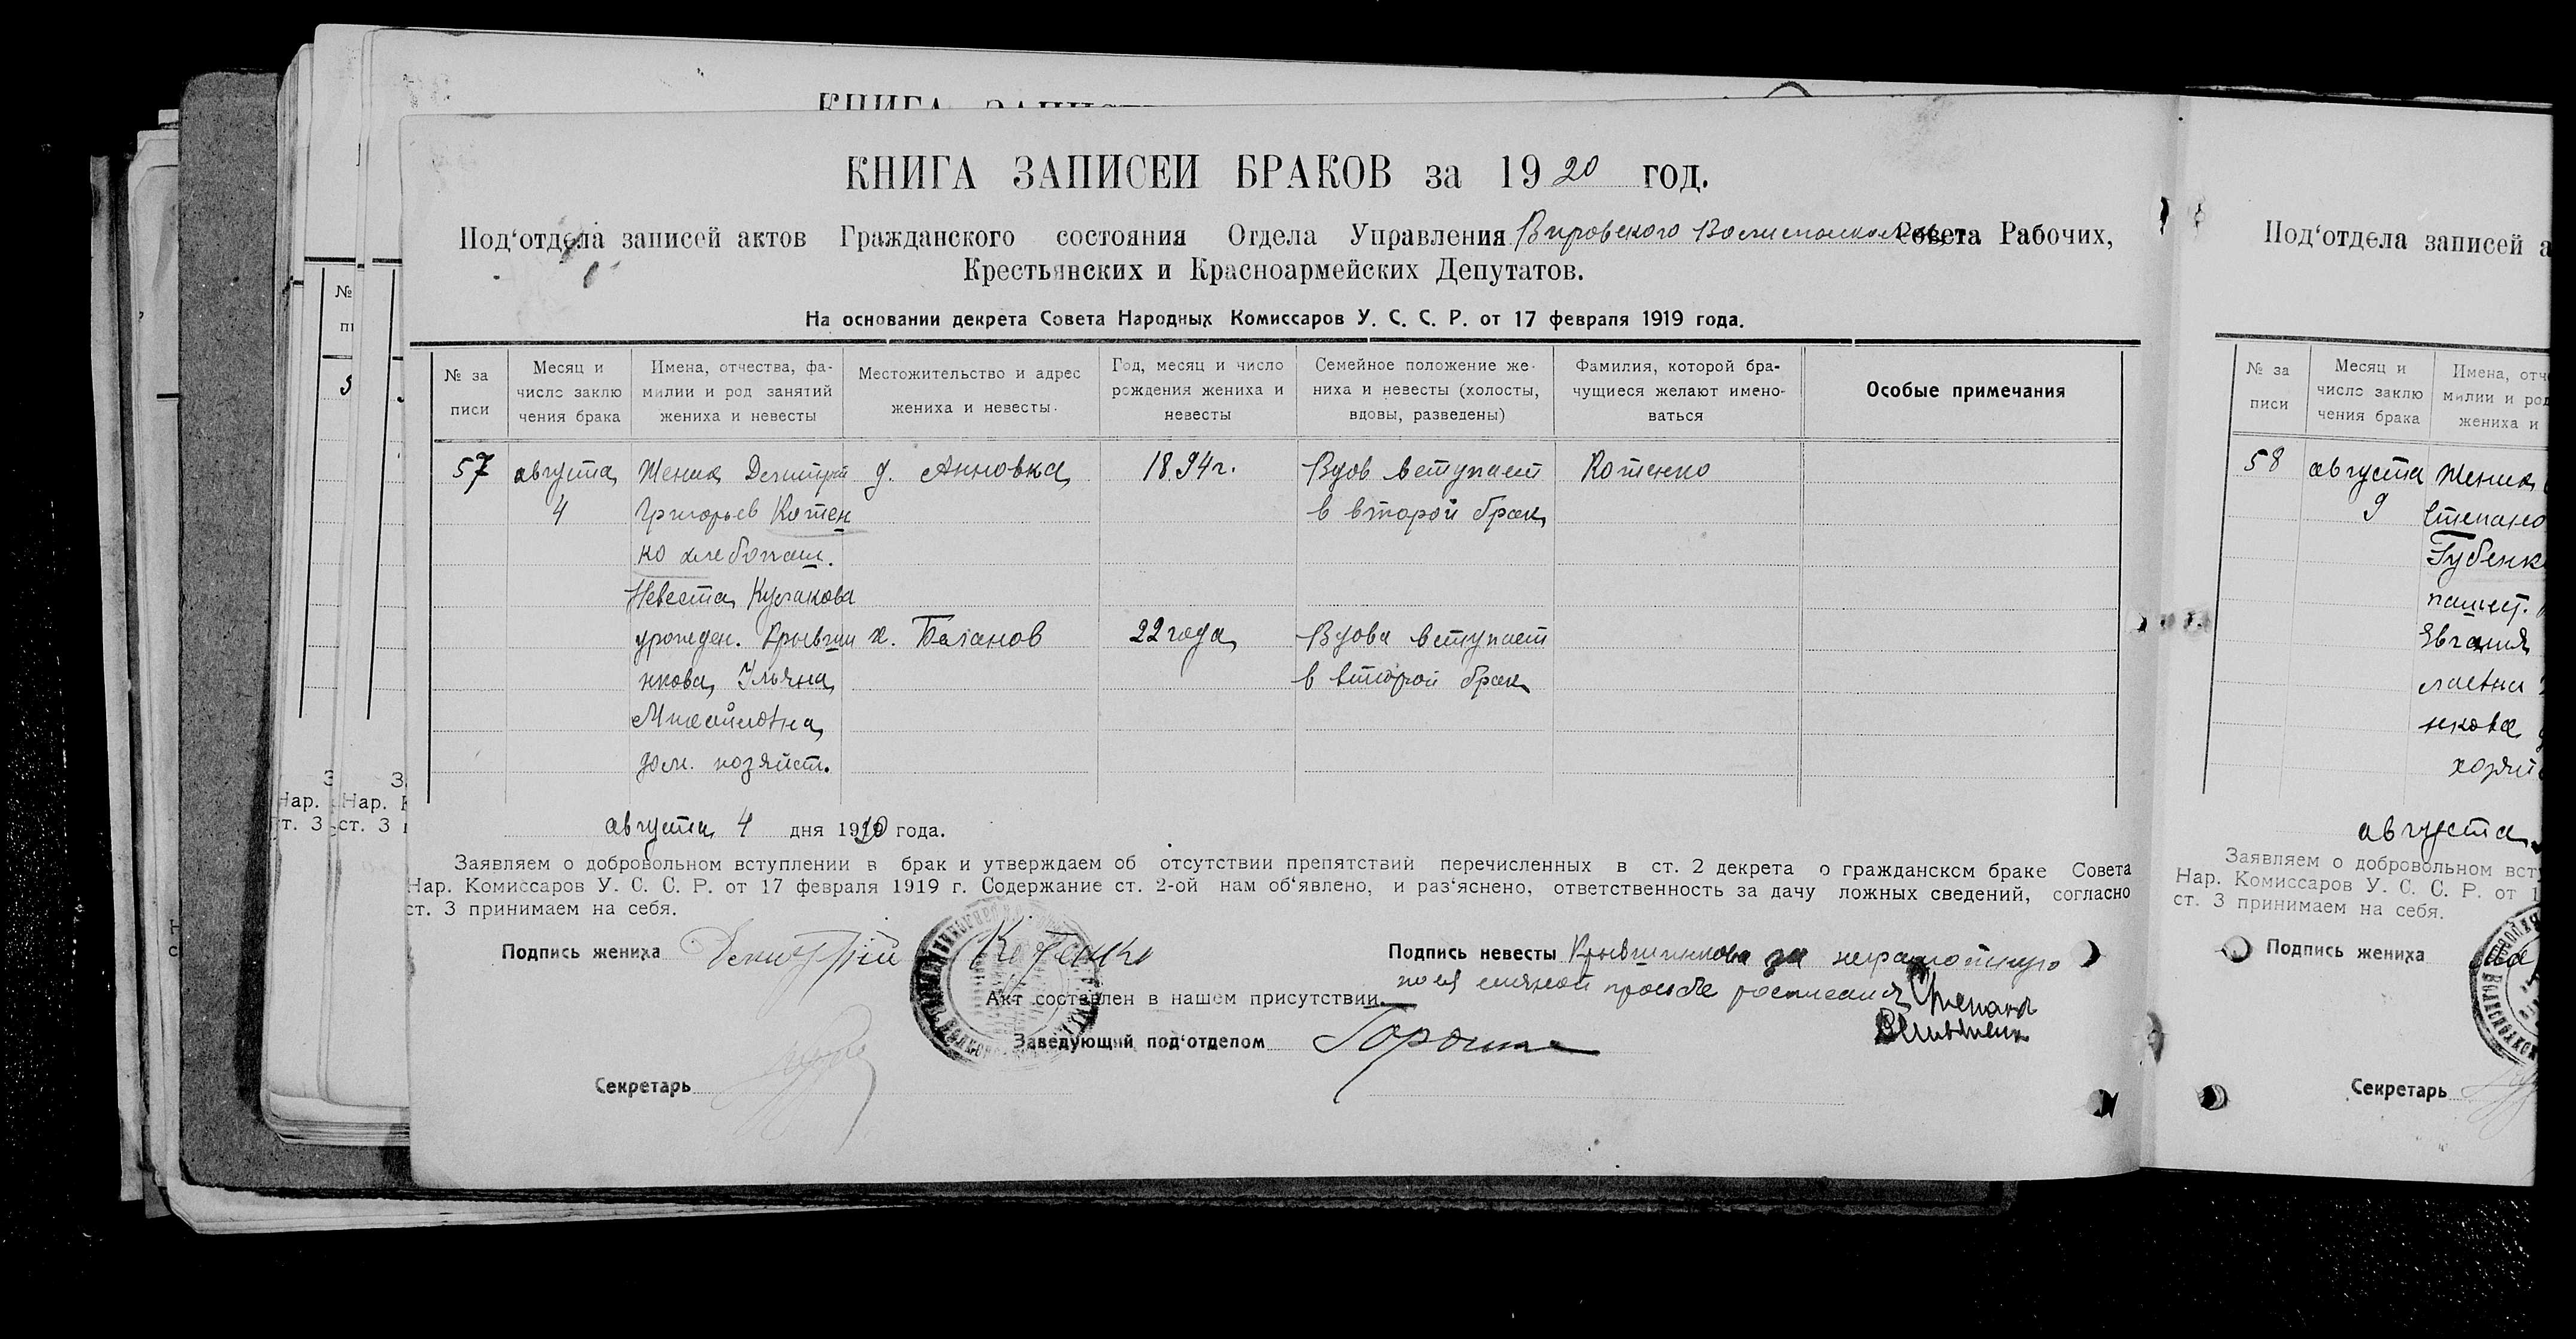 КНИГА ЗАПИСЕЙ БРАКОВ за 1920 год.
Под‘отдела записей актов Гражданского состояния Отдела Управления Вировского Совета Рабочих,
Крестьянских и Красноармейских Депутатов.
На основании декрета Совета Народных Комиссаров У. С. С. Р. от 17 февраля 1919 года.
№ за писи
Месяц и число заклю чения брака
Имена, отчества, фамилии и род занятий жениха и невесты
Местожительство и адрес жениха и невесты.
Год, месяц и число рождения жениха и невесты
Семейное положение жениха и невесты (холосты, вдовы, разведены)
Фамилия, которой брачущиеся желают именоваться
Особые примечания
57 августа Жених Дмитрий д. Анновка 1894г. Вдов вступает Котенко
4 Григорьев Котен в второй брак
ко хлебопаш.
Невеста Кулакова
урожден. Крывши х. Баганов 22 года Вдова вступает
нкова Ульяна в второй брак
Михайловна
дом. хозяйст.
августа 4 дня 1920 года.
Заявляем о добровольном вступлении в брак и утверждаем об отсутствии препятствий перечисленных в ст. 2 декрета о гражданском браке Совета
Нар. Комиссаров У. С. С. Р. от 17 февраля 1919 г. Содержание ст. 2-ой нам об‘явлено, и раз‘яснено, ответственность за дачу ложных сведений, согласно
ст. 3 принимаем на себя.
Подпись жениха Демитрий Котенко
Подпись невесты Крывшинкова за неграмотную
по ея личной просьбе росписался Степан
Акт составлен в нашем присутствии.
Заведующий под‘отделом
Секретарь
Под‘отдела записей а
№ за писи
Месяц и число заклю чения брака
Имена, отч
милии и род
жениха и
58 августа Жених
9 Степано
Губенк
пашест.
Евгения
нкова
хозяй
августа
Заявляем о добровольном всту
Нар. Комиссаров У. С. С. Р. от 1
ст. 3 принимаем на себя.
Подпись жениха
Секретарь